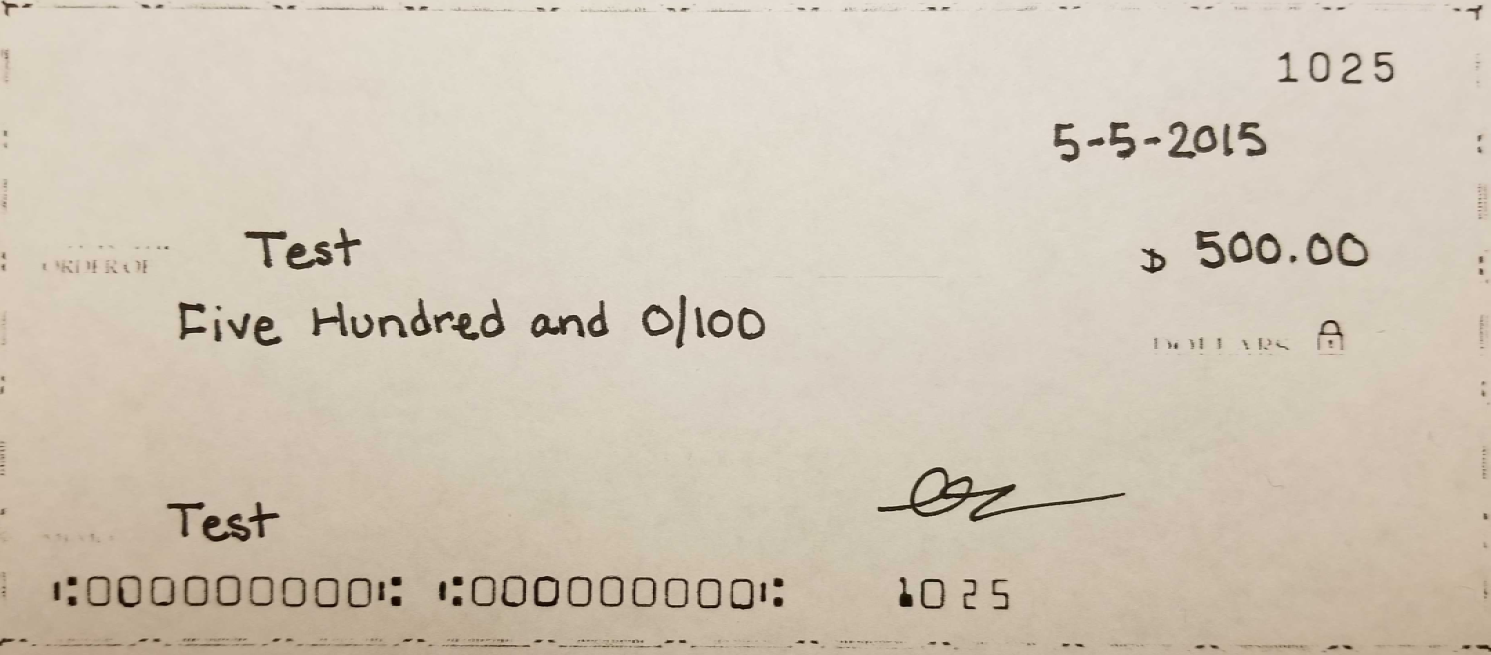 1025
5-5-2015
ORDER OF Test $ 500.00
Five Hundred and 0/100
DOLLARS
Test
⑆000000000⑆ ⑆000000000⑆ 1025